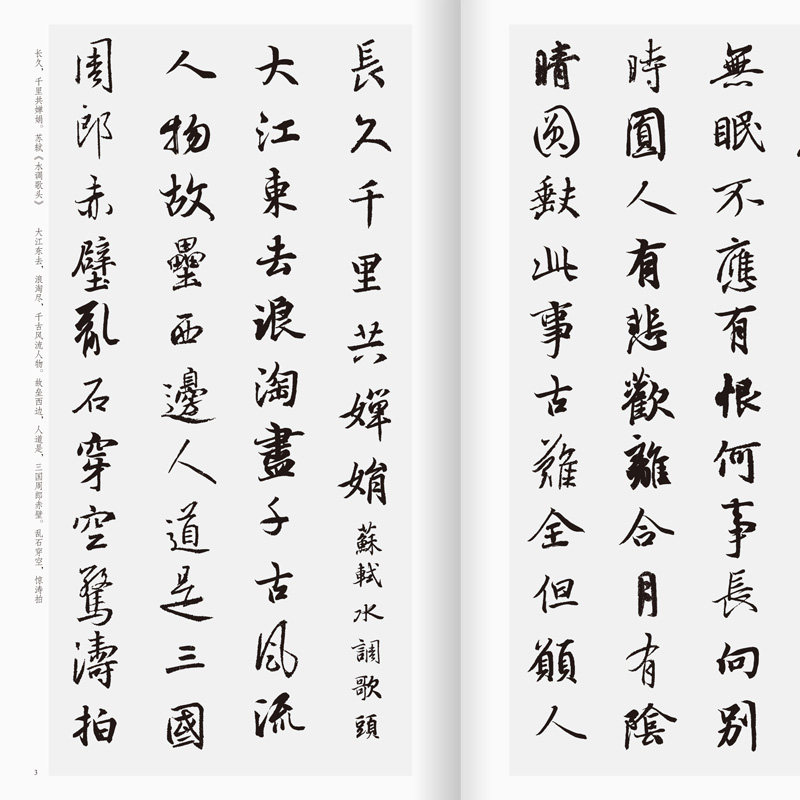 無眠不應有恨何事長向別
時圓人有悲歡離合月有陰
晴圓缺此事古難全但願人
長久千里共嬋娟蘇軾水調歌頭
大江東去浪淘盡千古風流
人物故壘西邊人道是三國
周郎赤壁亂石穿空驚濤拍
长久，千里共婵娟。苏轼《水调歌头》 大江东去，浪淘尽，千古风流人物。故垒西边，人道是，三国周郎赤壁。乱石穿空，惊涛拍
3